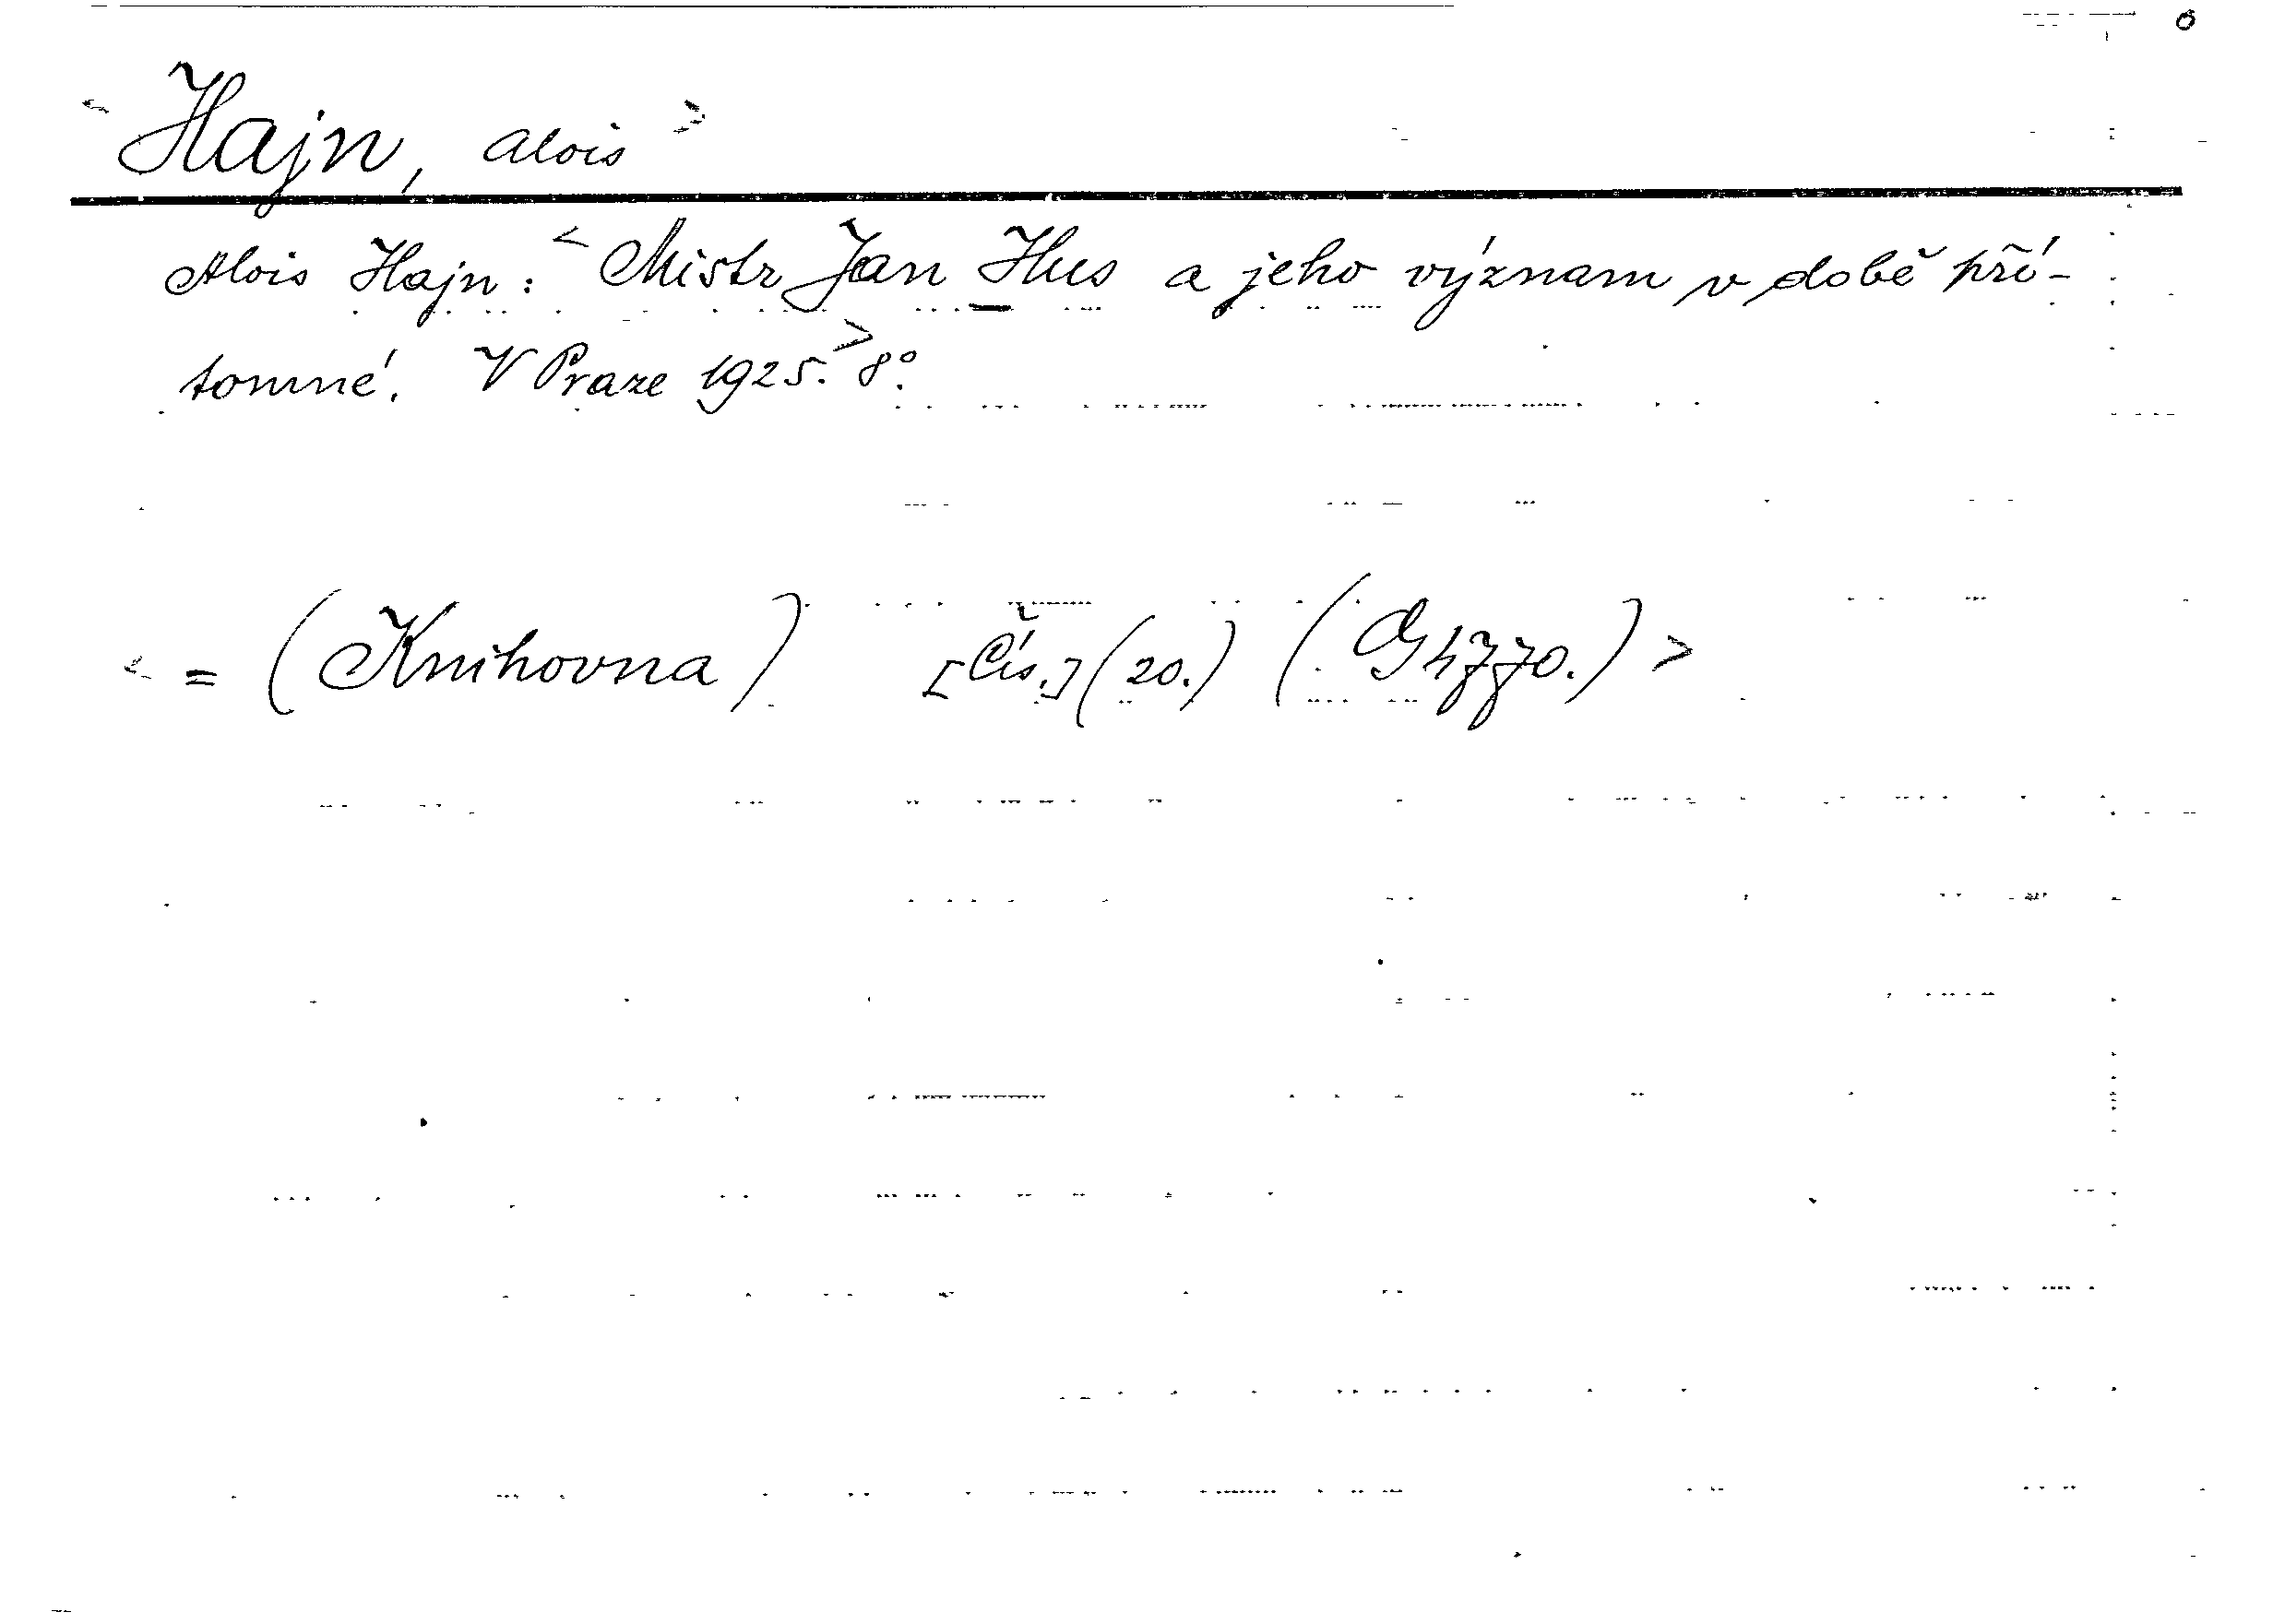 < Hajn, Alois >
Alois Hajn: < Mistr Jan Hus a jeho význam v době pří-
tomné. V Praze 1925. > 8°.
< = (Knihovna) [Čís.] (20.) (G 4770.) >